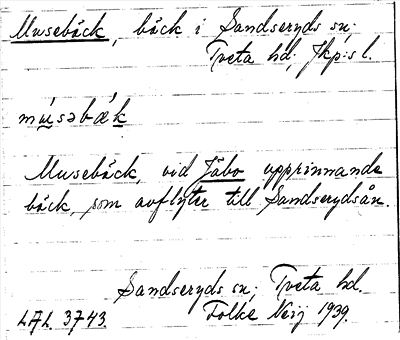 Musebäck, bäck i Sandseryds sn;
Tveta hd, Jkp:s l.
músəbǽk
Musebäck, vid Jäbo upprinnande
bäck, som avflyter till Sandserydsån.
Sandseryds sn; Tveta hd.
LAL. 3743. Folke Neij 1939.